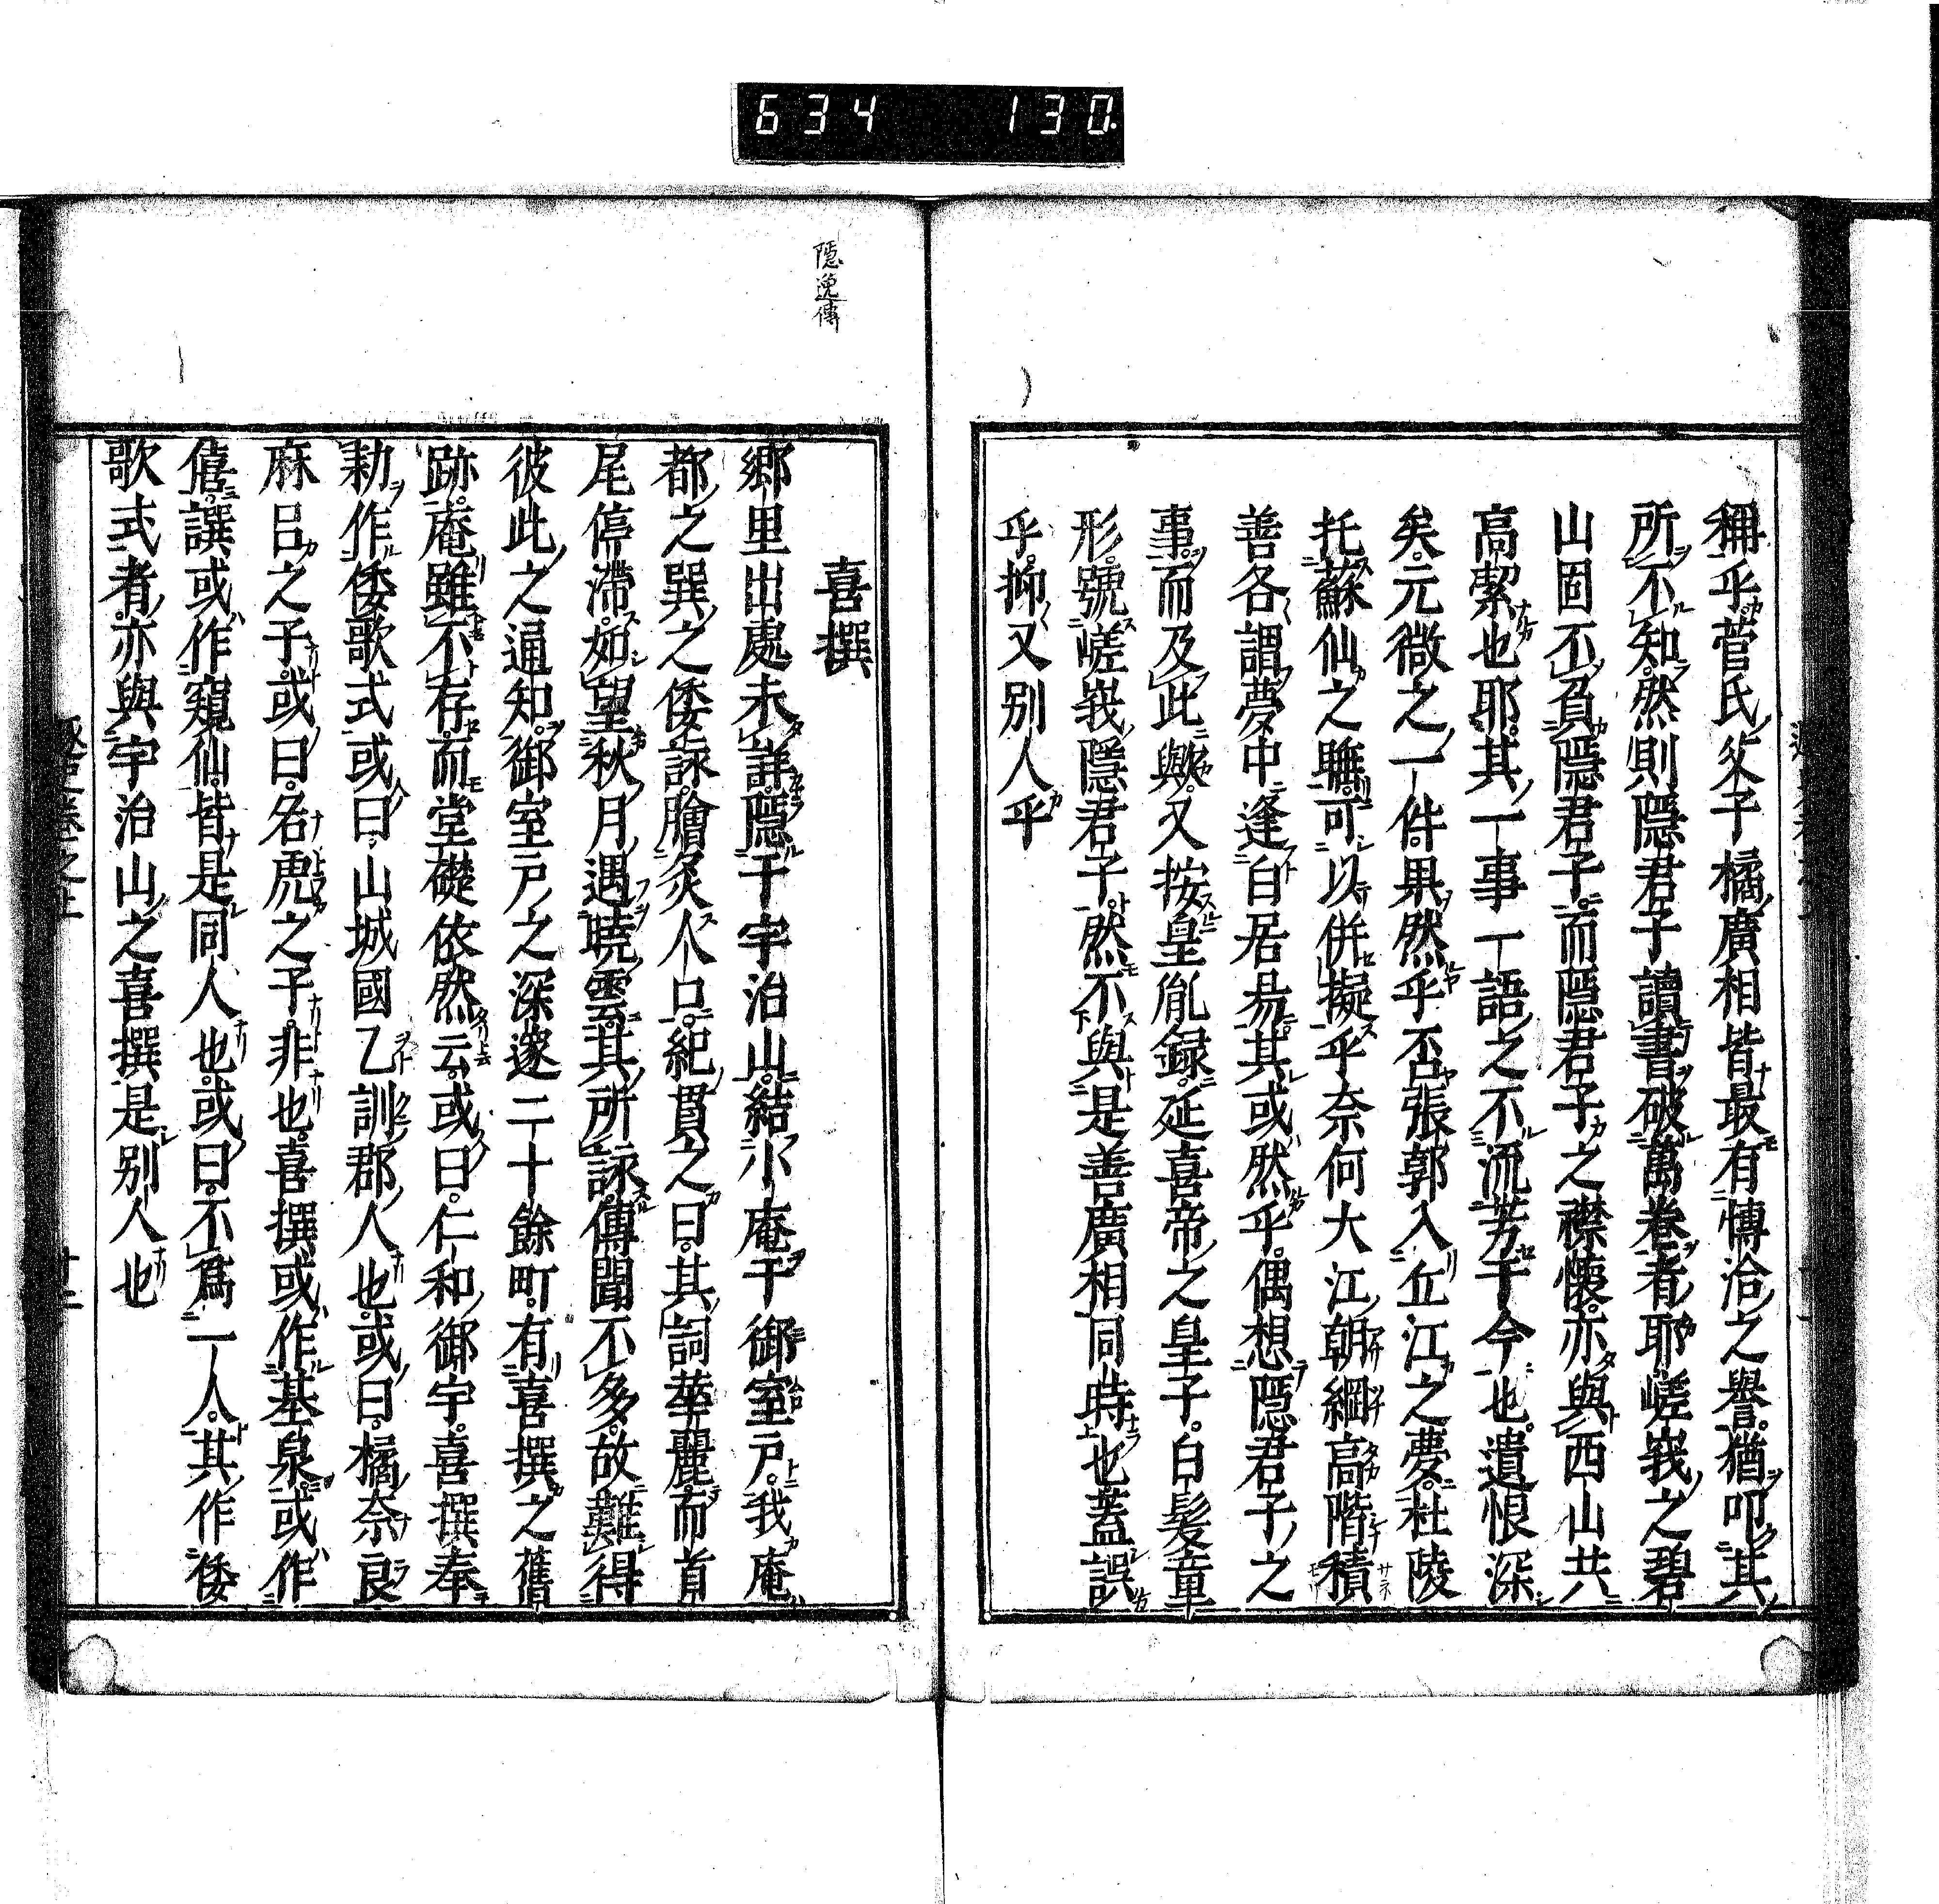 634 130.
稱乎菅氏父子橘廣相皆最有博洽之譽猶叩其
所不知然則隱君子讀書破萬卷者耶嵯峩之碧
山固不負隱君子而隱君子之襟懷亦與西山共
高潔也耶其一事一語之不流芳于今也遺恨深
矣元微之一件果然乎否張郭入丘江之夢杜陵
托蘇仙之騁可以併擬乎奈何大江朝綱高階積
善各謂夢中逢白居易其或然乎偶想隱君子之
事而及此歟又按皇胤録延喜帝之皇子白髮童
形號嵯峩隱君子然不與是善廣相同時也蓋誤
乎抑又別人乎
隱逸傳
喜撰
鄉里出處未詳隱于宇治山結小庵于御室戸我庵
都之巽之倭詠膾炙人口紀貫之曰其詞華麗而首
尾停滯如望秋月遇曉雲其所詠傳聞不多故難得
彼此之通知御室戸之深邃二十餘町有喜撰之舊
跡庵雖不存而堂礎依然云或曰仁和御宇喜撰奉
勅作倭歌式或曰山城國乙訓郡人也或曰橘奈良
麻呂之子或曰名虎之子非也喜撰或作基泉或作
僖譔或作窺仙皆是同人也或曰不爲一人其作倭
歌式者亦與宇治山之喜撰是別人也